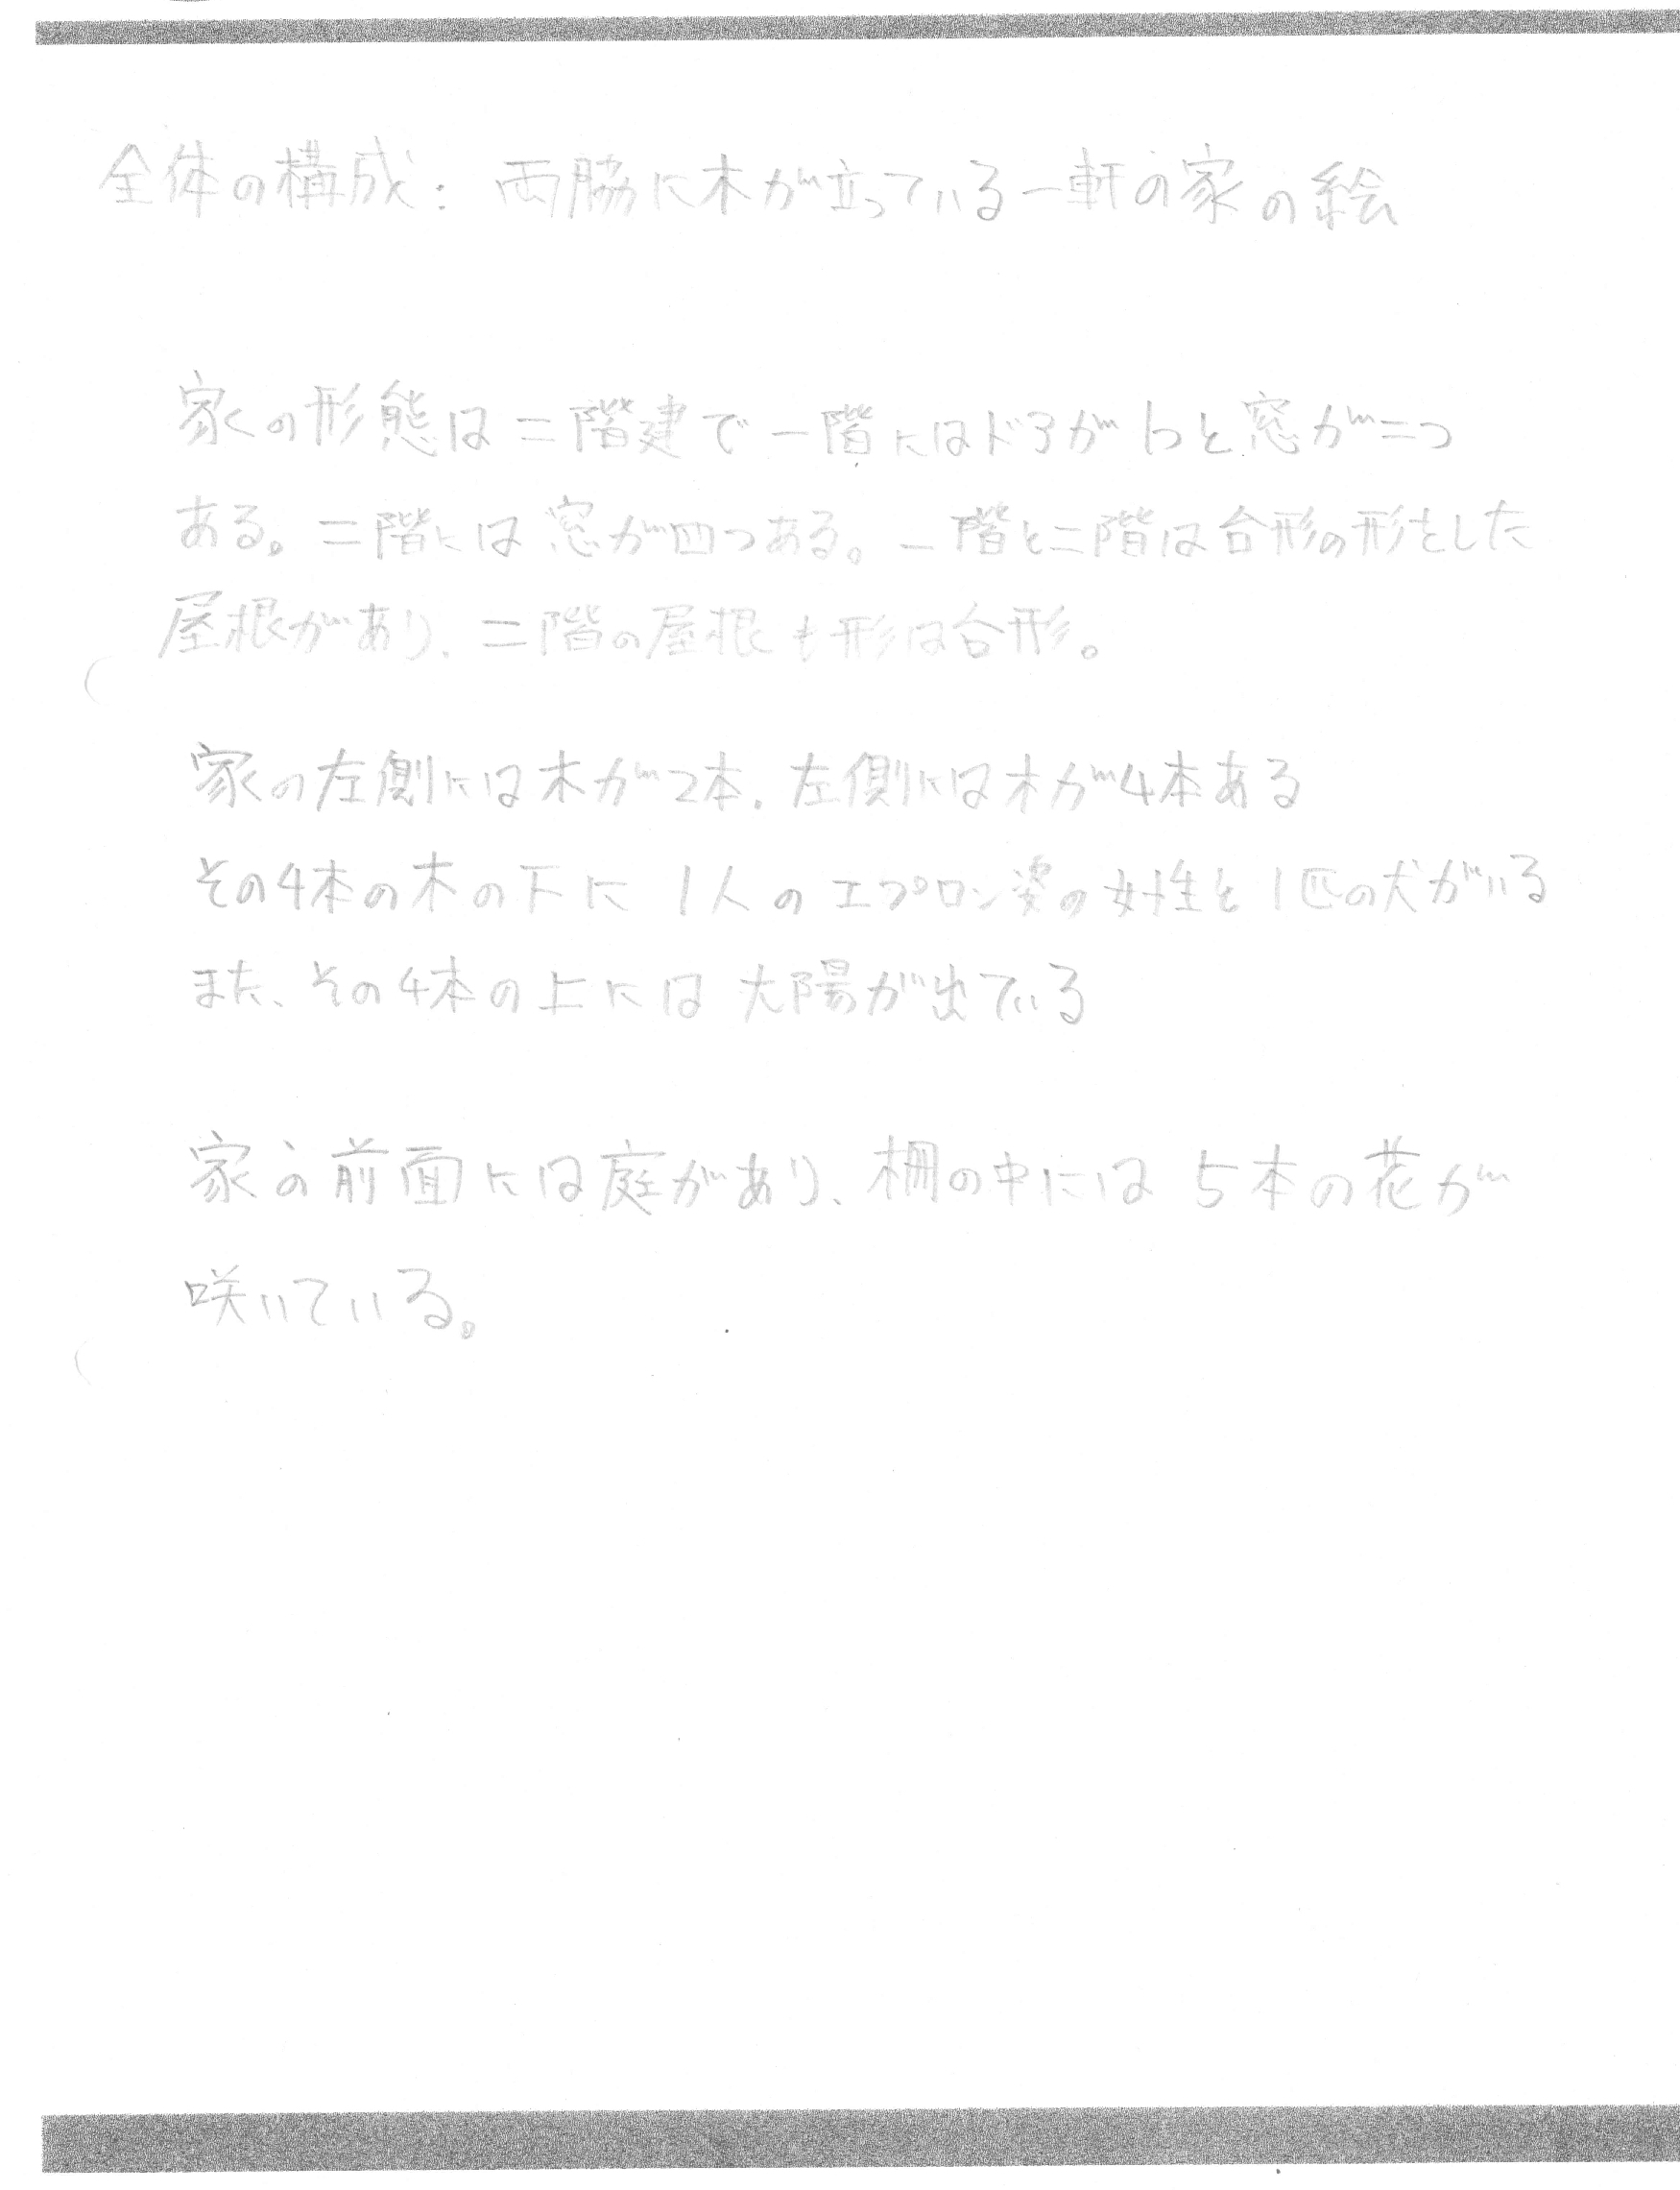 全体の構成：両脇に木が立っている一軒の家の絵
家の形態は二階建で一階にはドアが1つと窓が二つ
ある。二階には窓が四つある。一階と二階は台形の形をした
屋根があり、二階の屋根も形は台形。
家の左側には木が2本、左側には木が4本ある
その4本の木の下に1人のエプロン姿の女性と1匹の犬がいる
また、その4本の上には太陽が出ている
家の前面には庭があり、柵の中には5本の花が
咲いている。